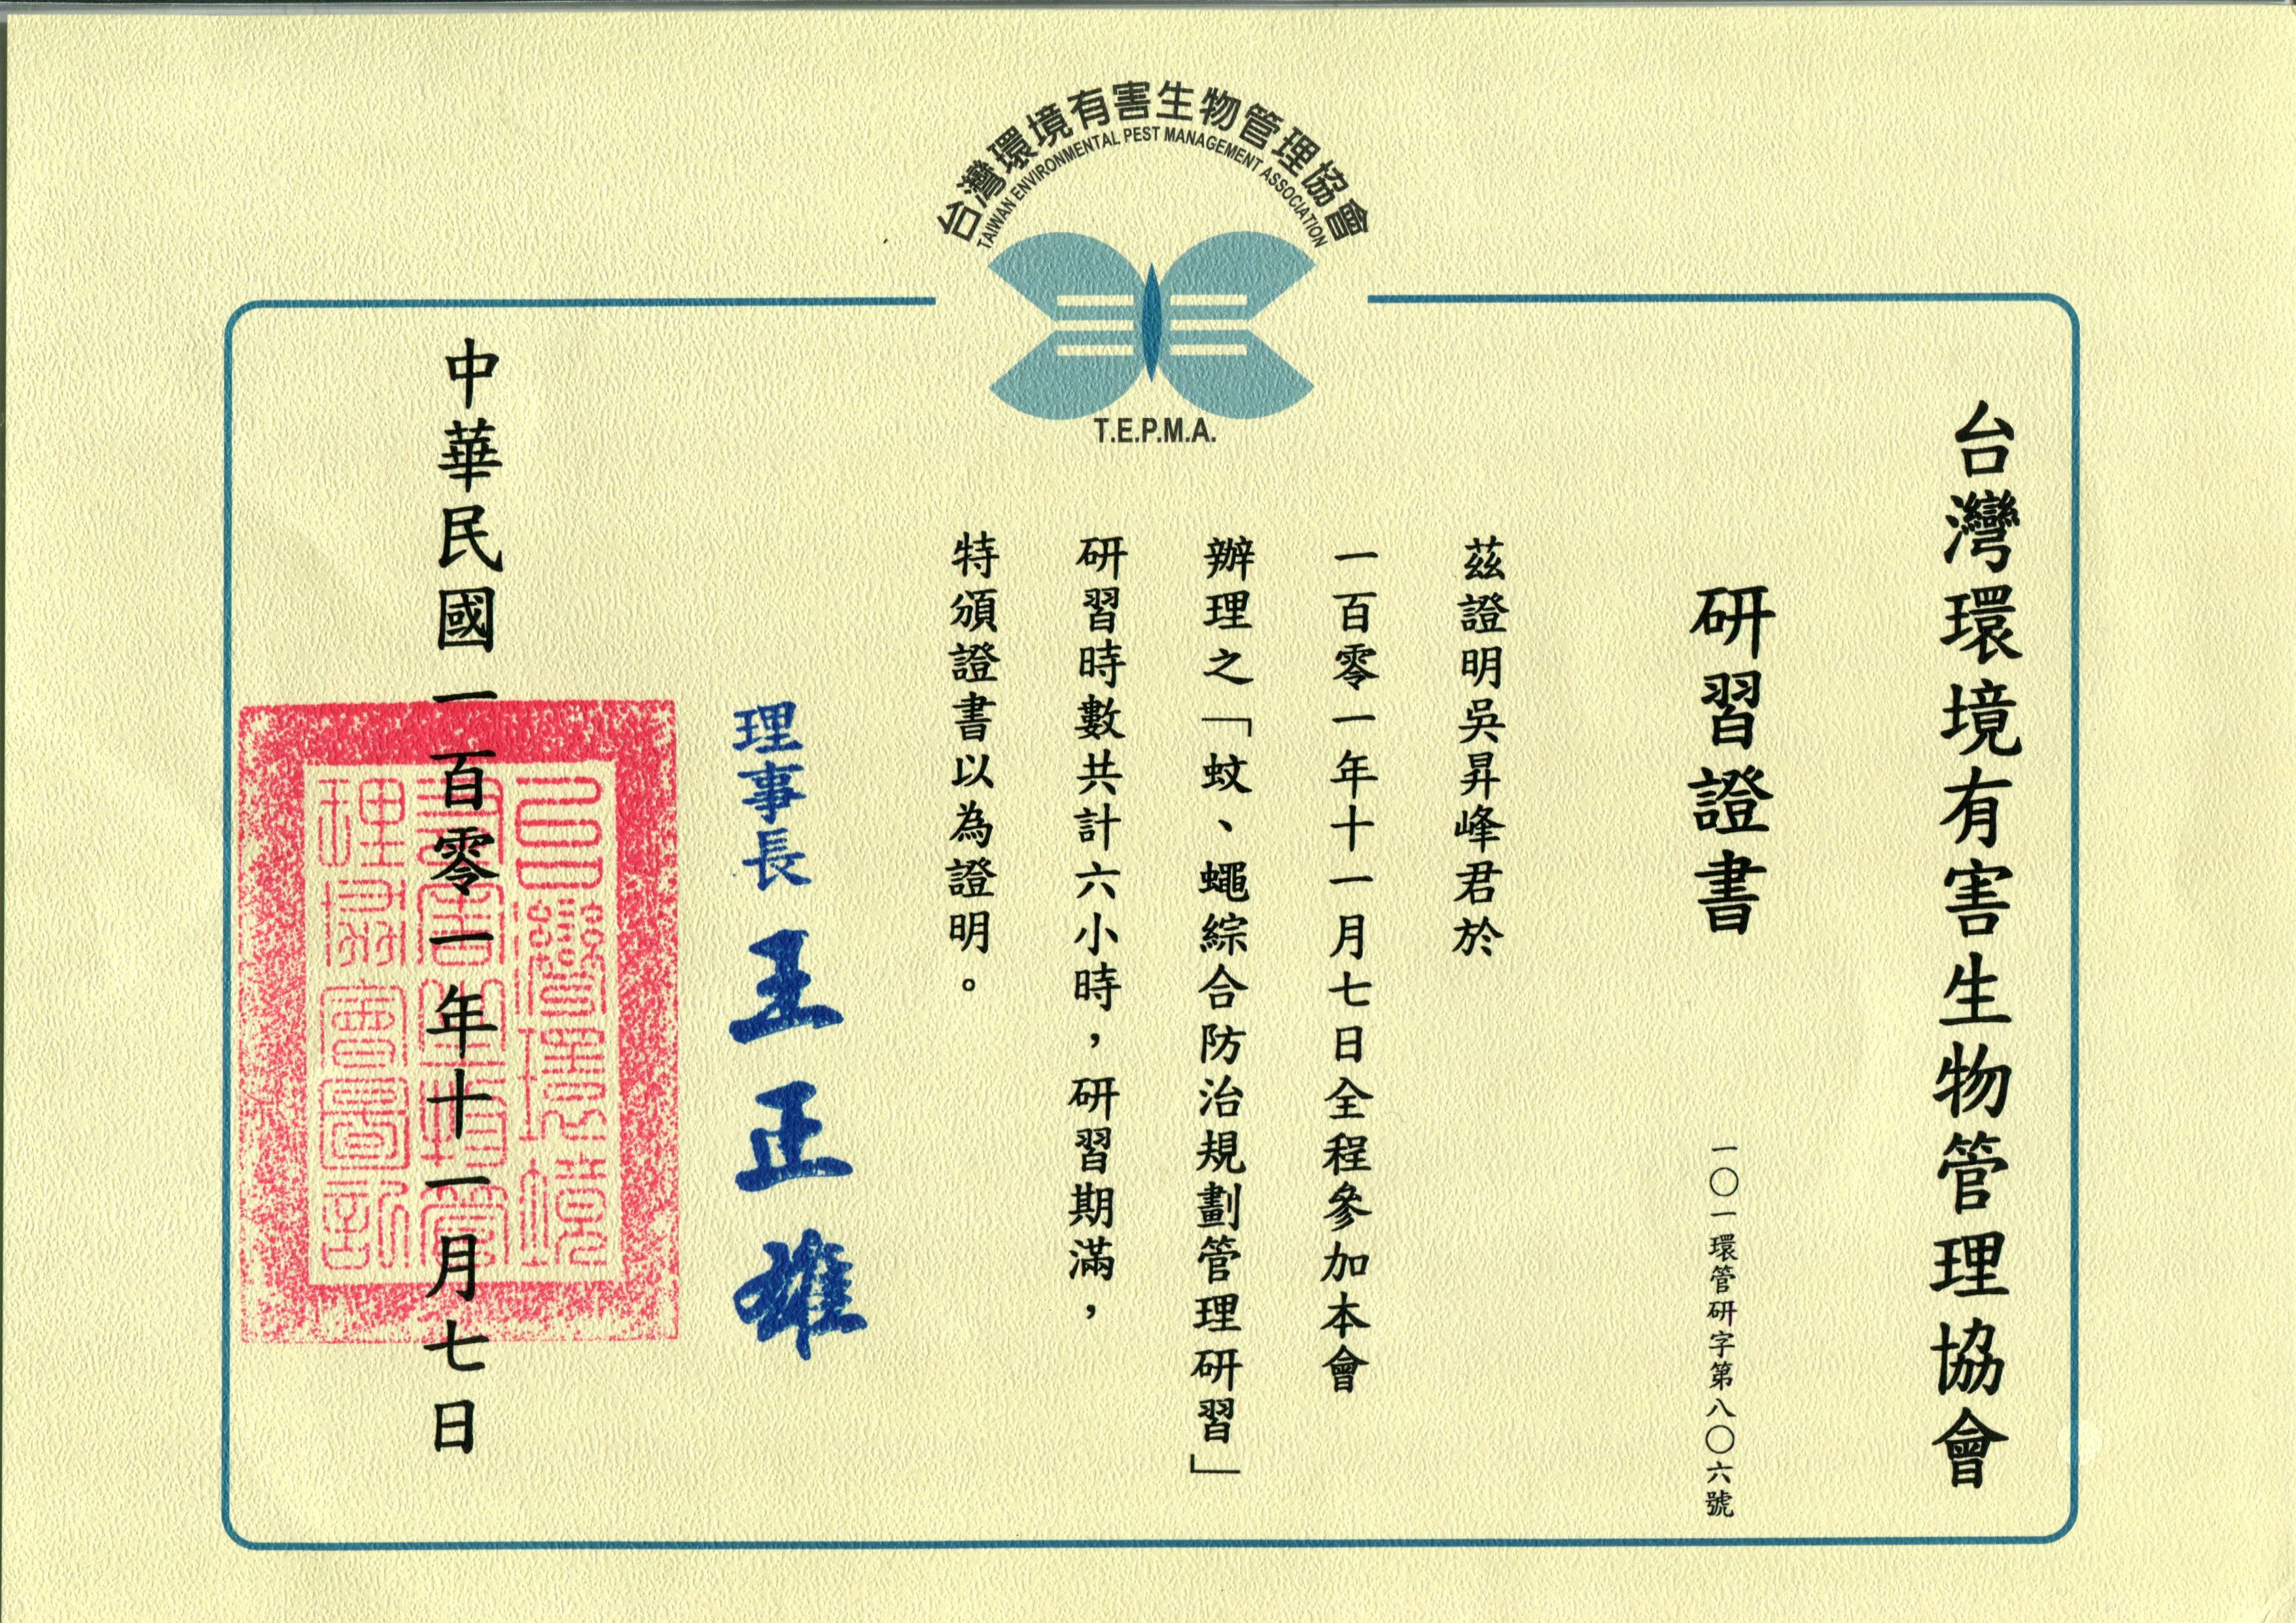 台灣環境有害生物管理協會
TAIWAN ENVIRONMENTAL PEST MANAGEMENT ASSOCIATION
T.E.P.M.A.
台灣環境有害生物管理協會
研習證書
一〇一環管研字第八〇六號
茲證明吳昇峰君於
一百零一年十一月七日全程參加本會
辦理之「蚊、蠅綜合防治規劃管理研習」
研習時數共計六小時，研習期滿，
特頒證書以為證明。
理事長 王正雄
中華民國一百零一年十一月七日
台灣環境
有害生物管
理協會圖記